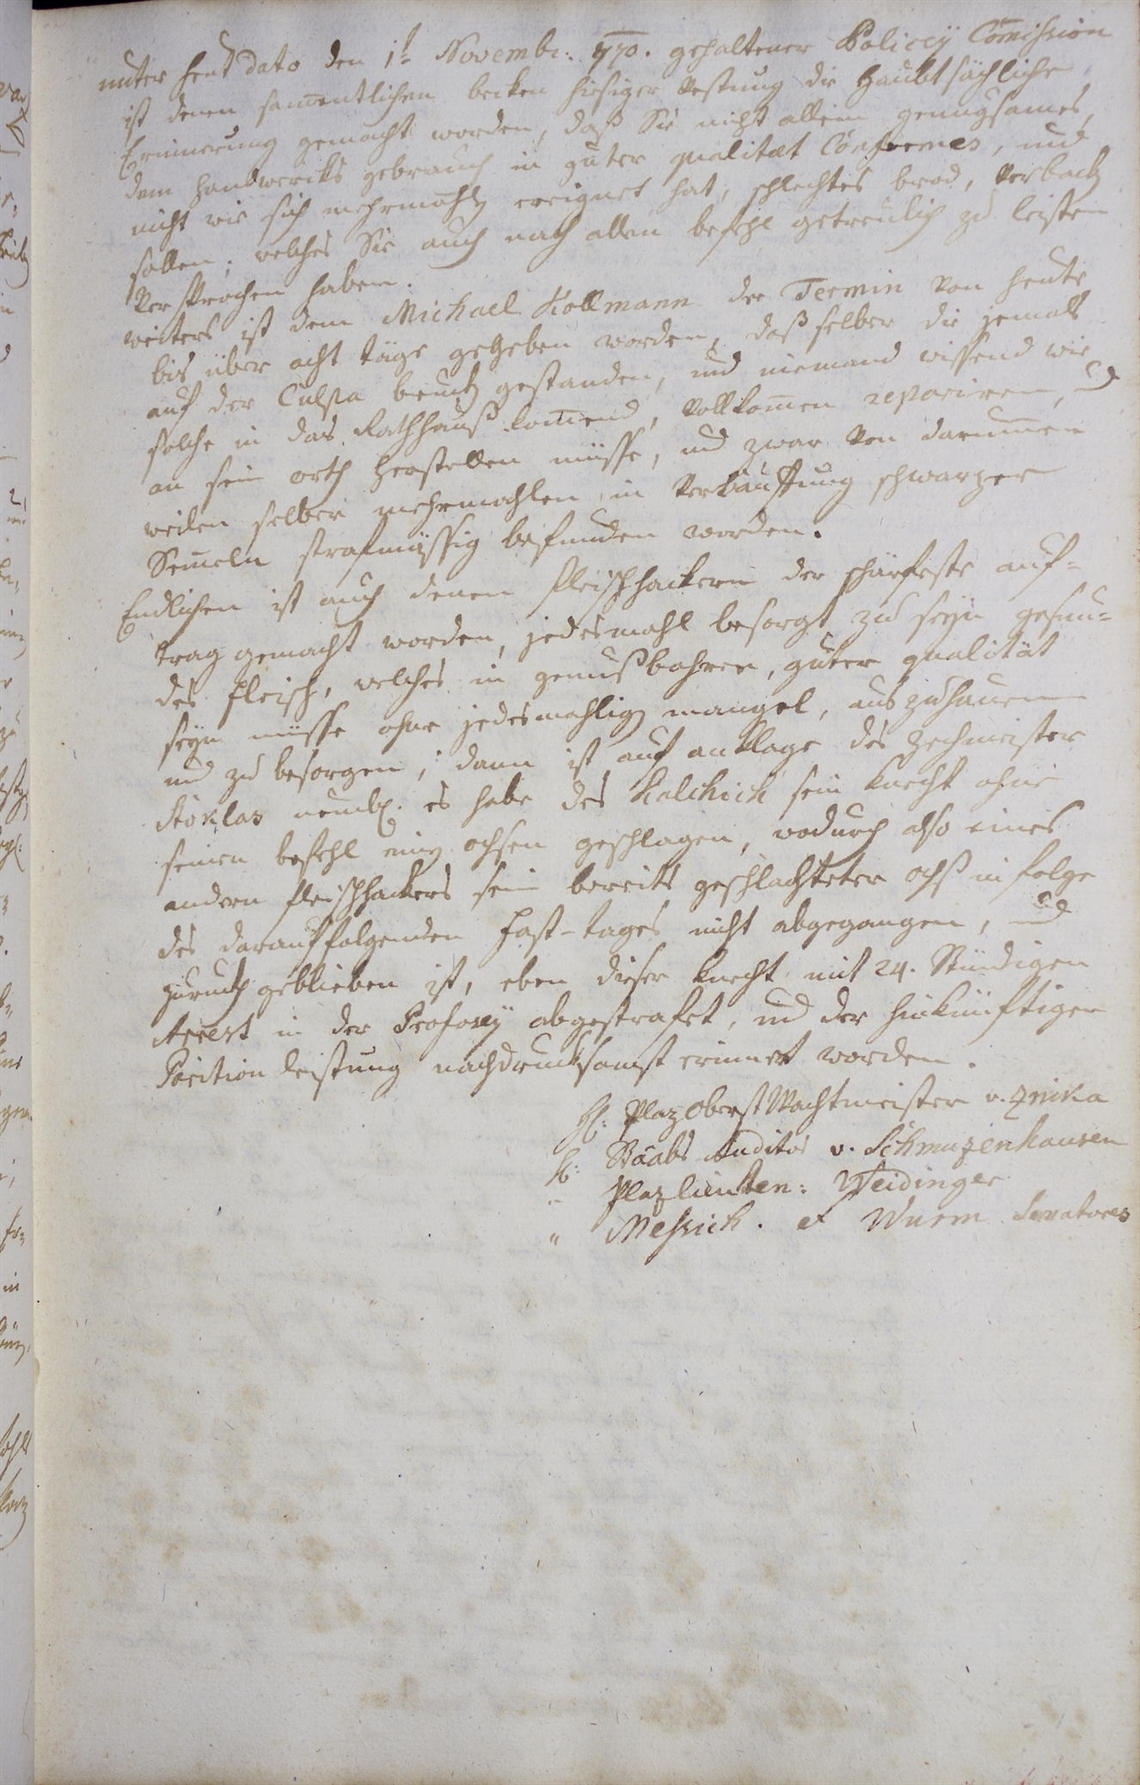 unter heut dato den 1t Novembr: 770. gehaltener Policeÿ Com̅ission
ist denen sam̅entlichen becken hiesiger Vestung die haubtsächliche
Erinnerung gemacht worden, daß Sie nicht allein genugsames,
dem handwercks gebrauch in guter qualitæt Conformes, und
nicht wie sich mehrmahlß ereignet hat, schlechtes brod, verbach
sollen; welches Sie auch nach allen befehl getreulich zu leisten
versprochen haben.
weiters ist dem Michael Kollmann der Termin von heute
bis über acht täge gegeben worden, daß selber die jemals
auf der Culpa banck gestanden, und niemand wissend wie
solche in das Rathhauß kom̅end, vollkom̅en repariren, und
an sein orth herstellen müsse, und zwar von darum̅en
weilen selber mehrmahlen in Verkäuffung schwarzer
Sem̅eln strafmässig befunden worden.
Endlichen ist auch denen fleischhackern der schärfeste auf-
trag gemacht worden, jedesmahl besorgt zu seÿn gesun-
des fleisch, welches in genußbahrer, guter qualität
seÿn müsse ohne jedesmahlig mangel, auszuhauen
und zu besorgen; dann ist auf anklage des Zechmeister
Stoklas neml: es habe des Kalchich sein knecht ohne
seinen befehl einen ochsen geschlagen, wodurch also eines
andern fleischhackers sein bereits geschlachteter ochs in folge
des darauffolgenden fast-tages nicht abgegangen, und
zuruck geblieben ist, eben dieser knecht mit 24. Stündigen
Arrest in der Profosey abgestrafet, und der hinkünftigen
Parition leistung nachdrucksamst erinnert worden.
H: Plaz Obrist Wachtmeister v. Znika
H: Staabs Auditor v. Schmuzenhausen
" Plaz lieuten: Weidinger
" Messich. et Wurm Senatores